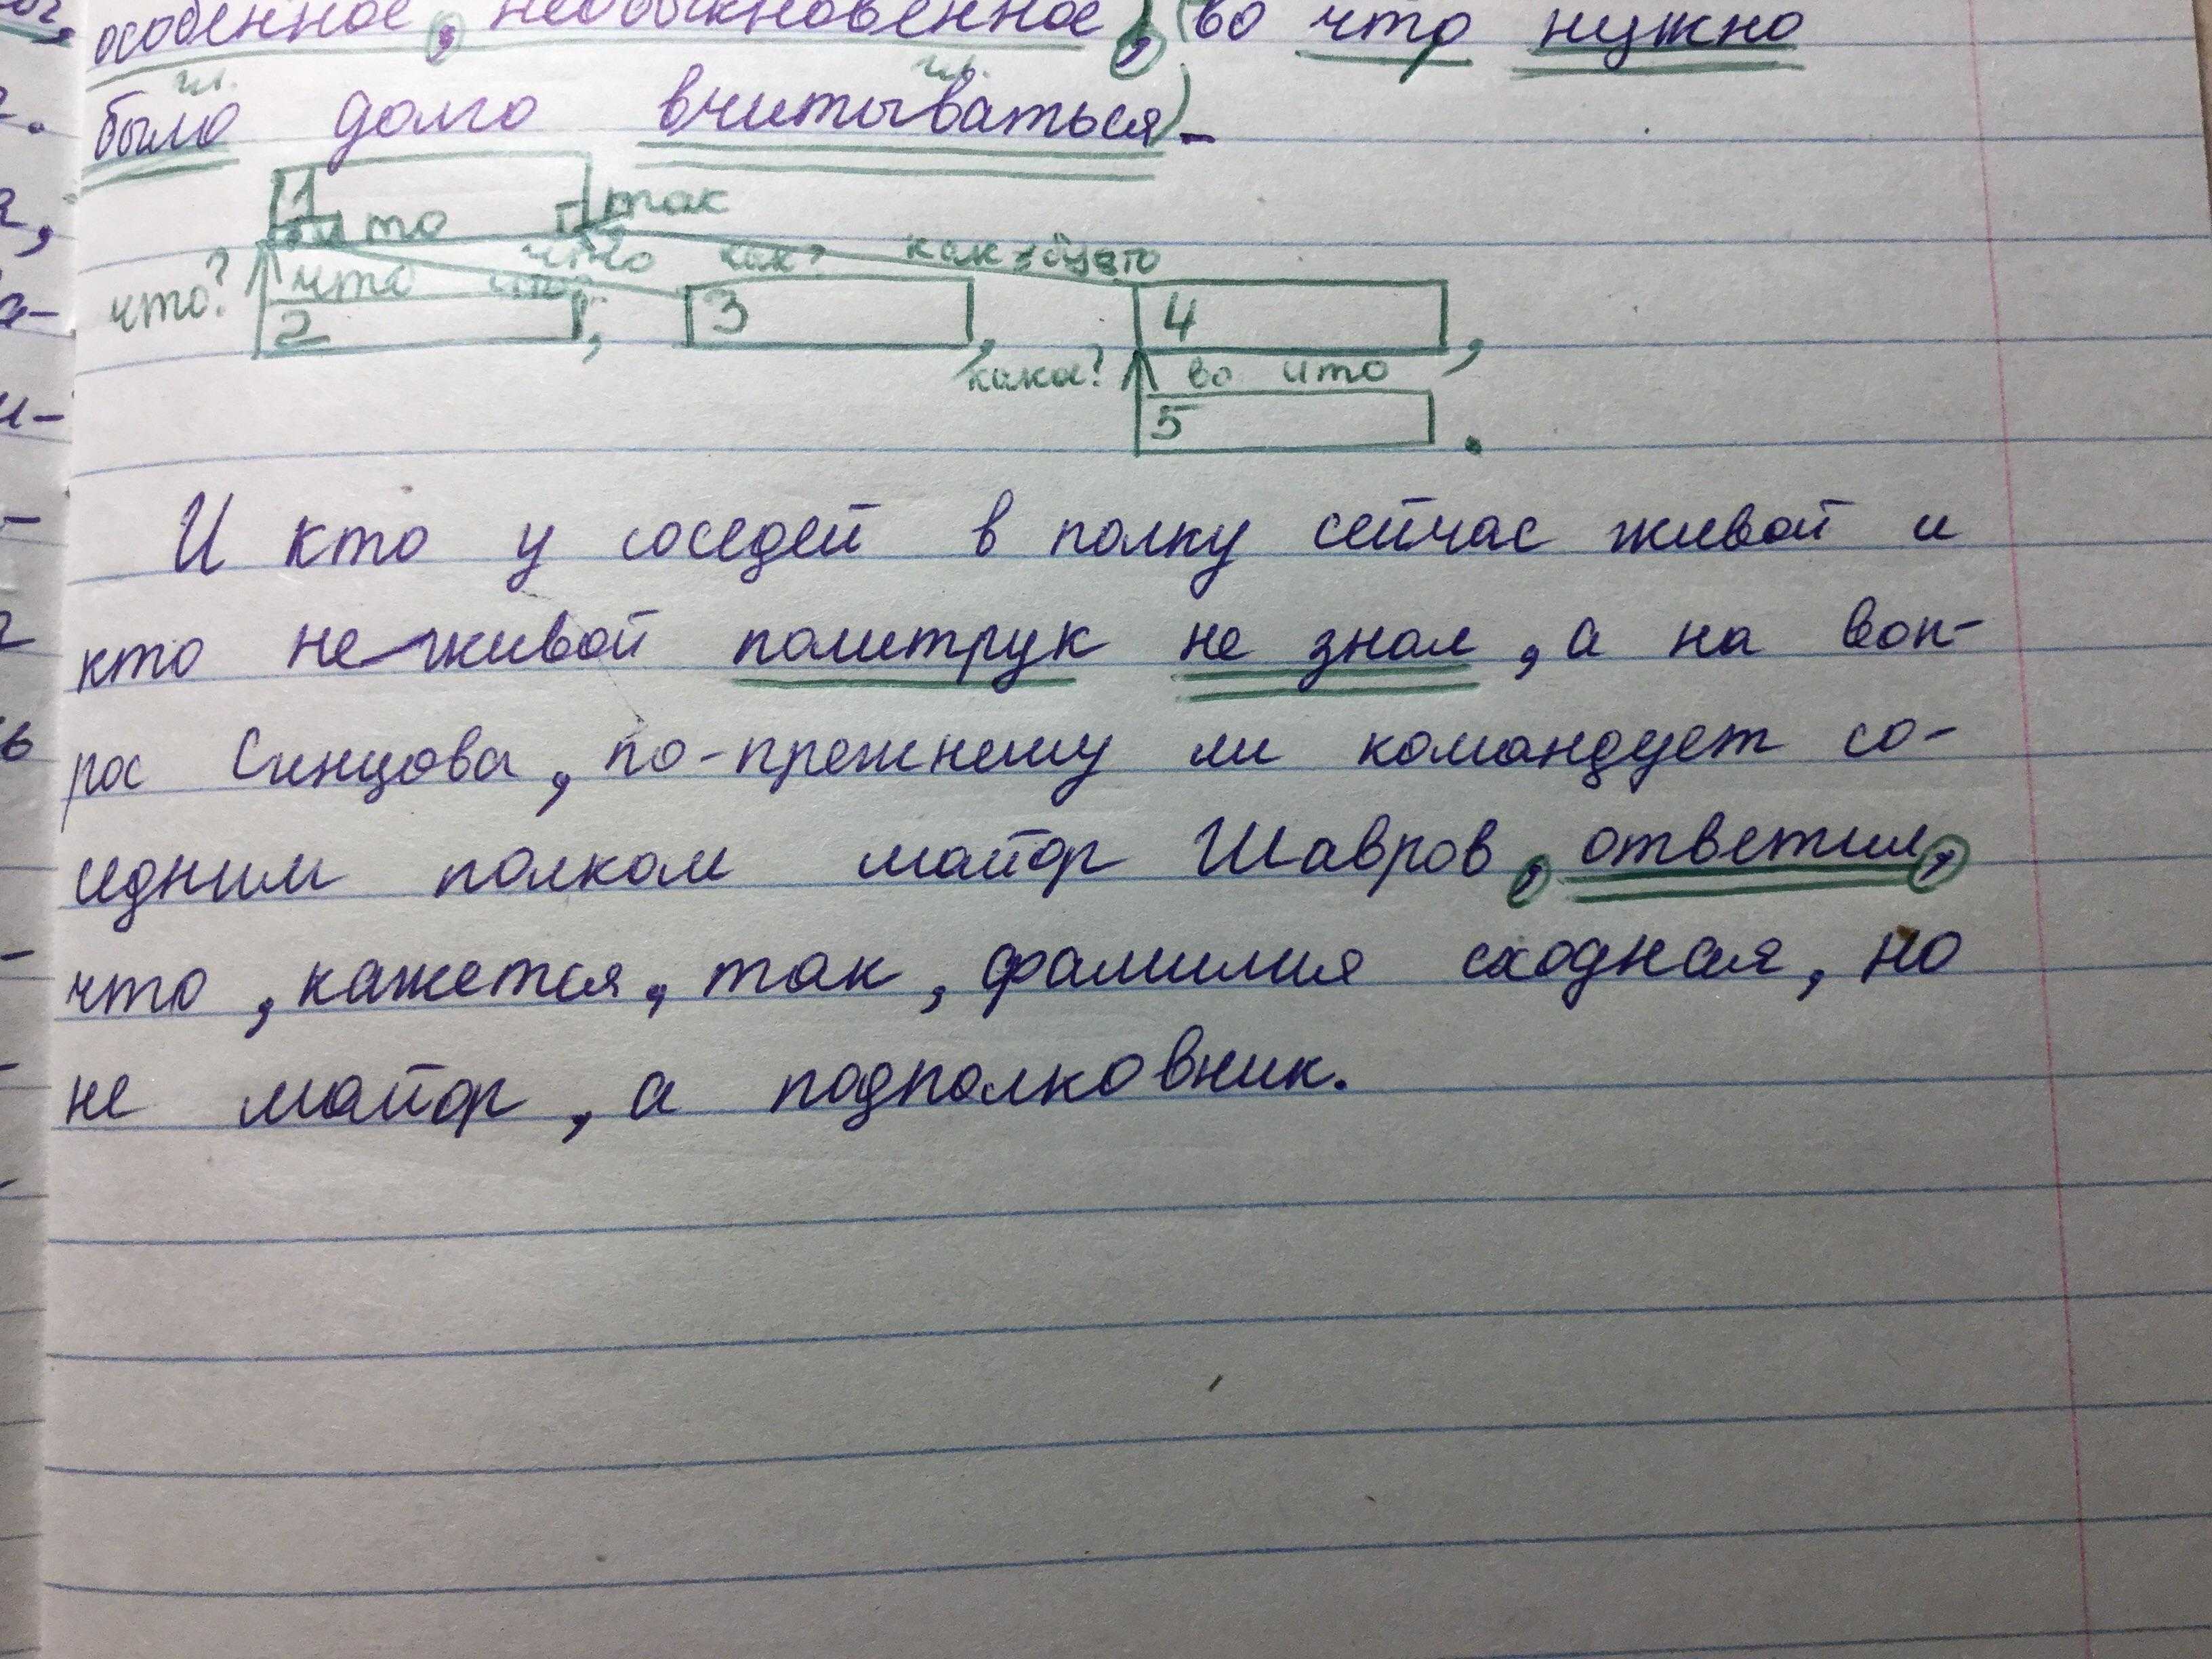 особенное, необыкновенное, (во что нужно
гл. гл.
было долго вчитываться).
1
то так
что как? как будто
что? что
2 , 3 , 4 ,
какое? во что
5 .
И кто у соседей в полку сейчас живой и
кто не живой политрук не знал, а на воп-
рос Синцова, по-прежнему ли командует со-
седним полком майор Шавров, ответил,
что, кажется, так, фамилия сходная, но
не майор, а подполковник.